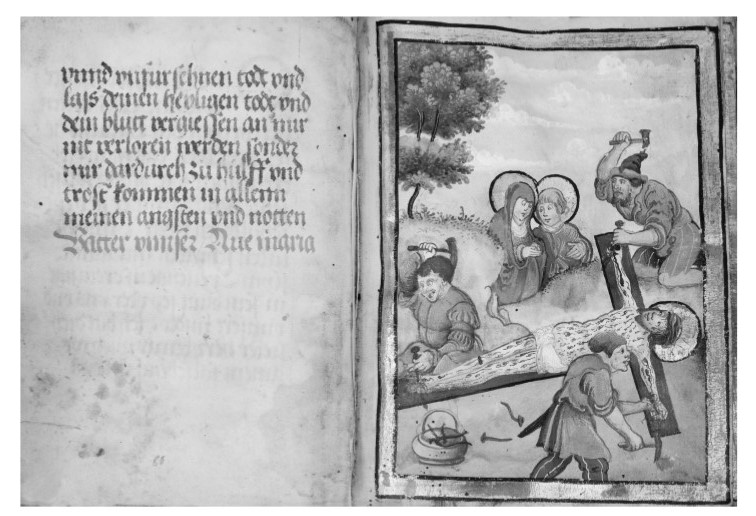 vnnd vnfürsehnen todt vnd
lass deinen heyligen todt vnd
dein blutt vergiessen an mir
nit verloren werden sonder
mir dardurch zu hilff vnd
trost kommen in allenn
meinen angsten vnd notten
Vatter vnnser Aue maria